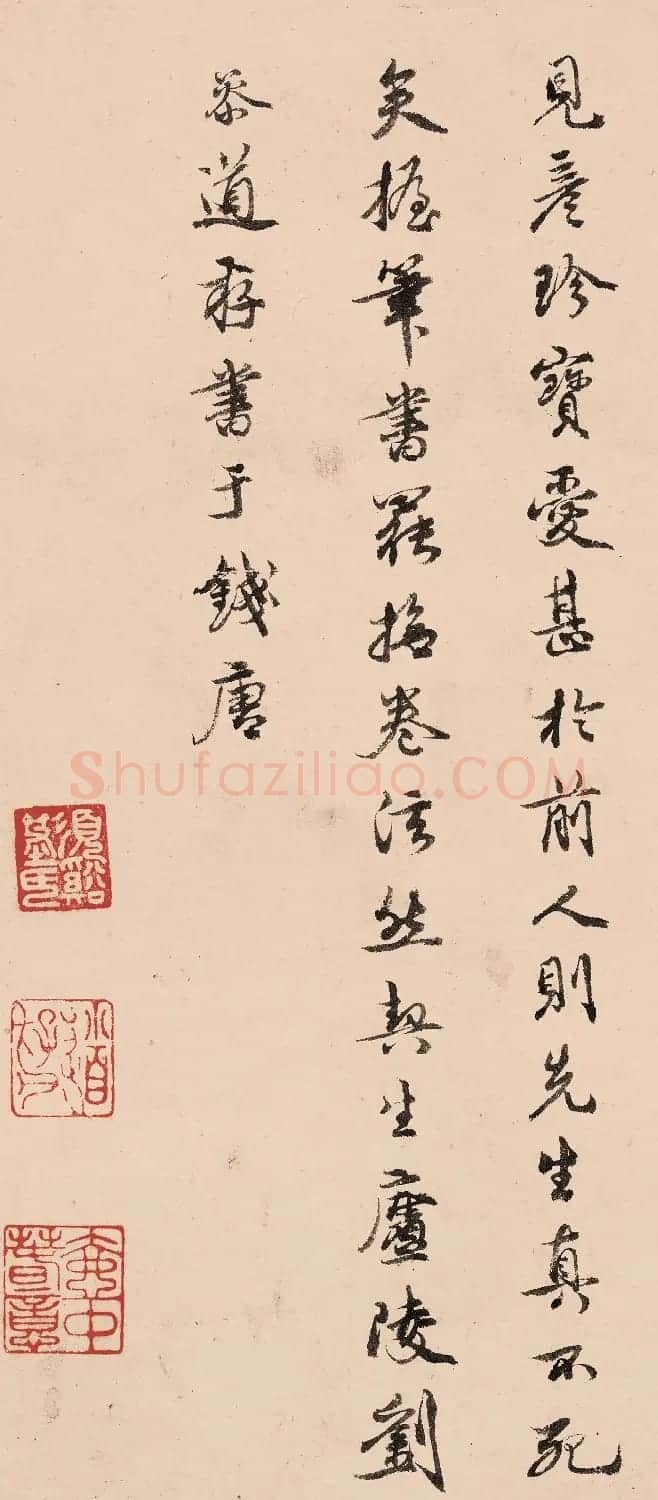 見彥珍寶愛甚於前人則先生真不死
矣握筆書罷掩卷泫然契生廬陵劉
恭道存書于錢唐
Shufaziliao.COM